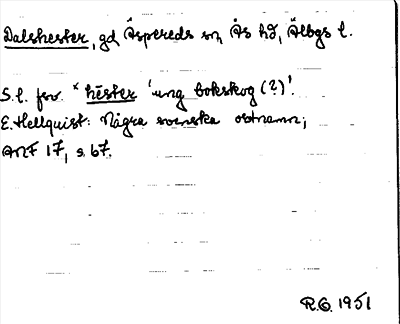 Dalshester, gd Äspereds sn, Ås hd, Älbgs l.
S.l. fsv. *hēster 'ung bokskog (?)'.
E. Hellquist: Några svenska ortnamn;
ANF 17, s. 67.
R.G. 1951